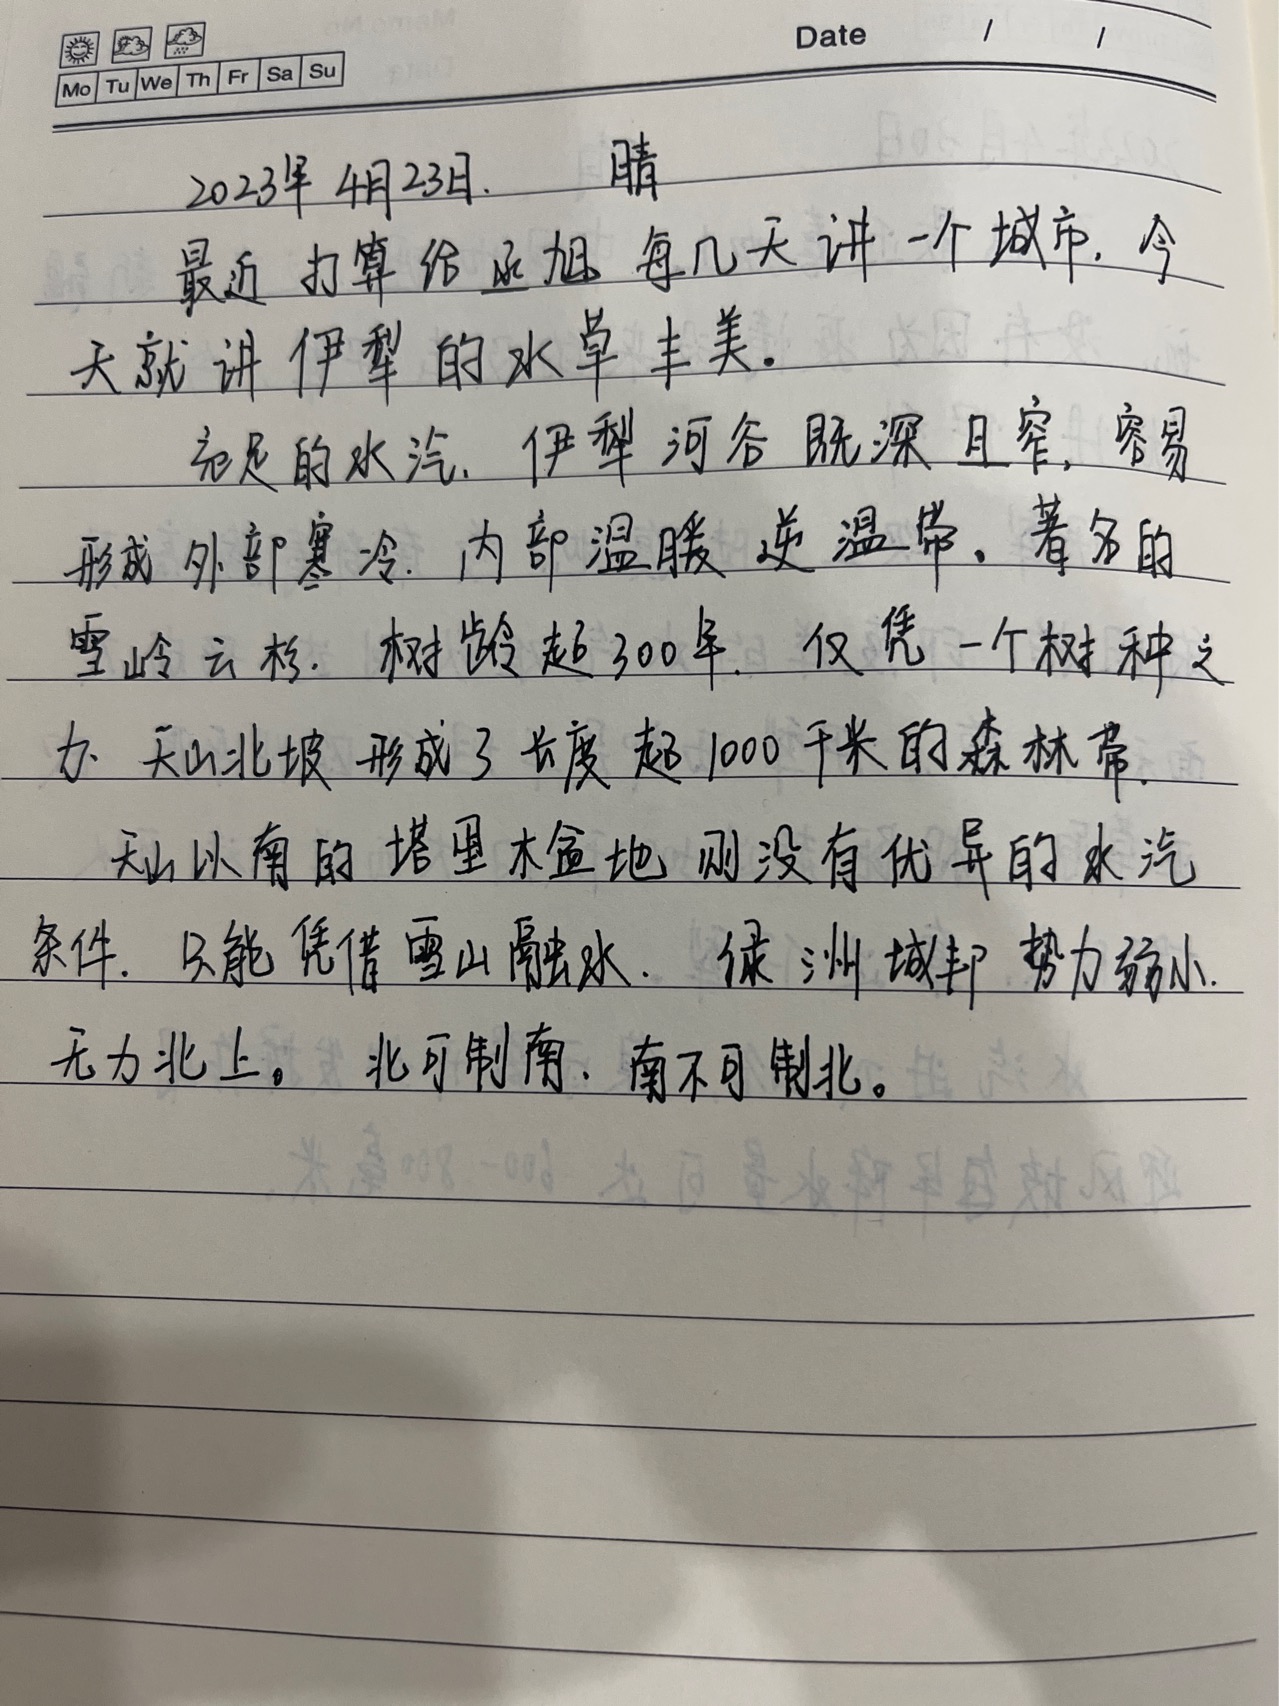 Date / /
Mo Tu We Th Fr Sa Su
2023年4月23日. 晴
最近打算给丞旭每几天讲一个城市.今
天就讲伊犁的水草丰美。
充足的水汽.伊犁河谷既深且窄,容易
形成外部寒冷.内部温暖逆温带。著名的
雪岭云杉.树龄超300年.仅凭一个树种之
力.天山北坡形成了长度超1000千米的森林带.
天山以南的塔里木盆地则没有优异的水汽
条件.只能凭借雪山融水.绿洲城邦势力弱小.
无力北上。北可制南.南不可制北。